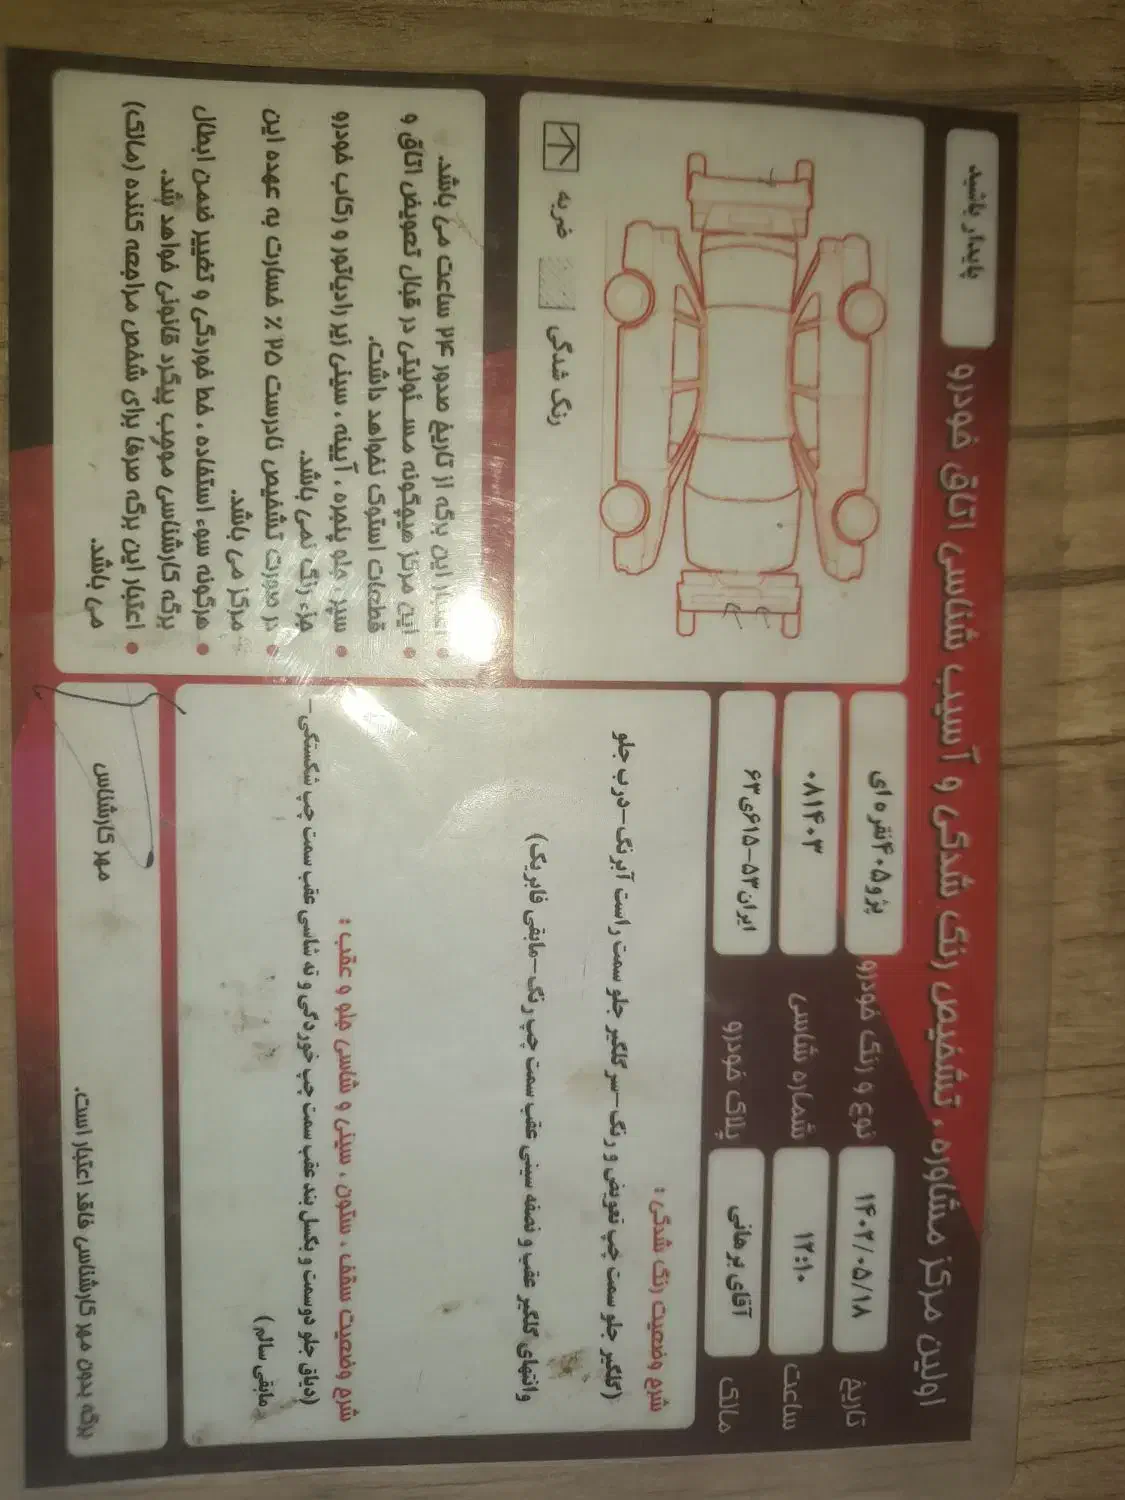 اولین مرکز مشاوره ، تشخیص رنگ شدگی و آسیب شناسی اتاق خودرو
پایدار باشید
تاریخ ۱۴۰۲/۰۵/۱۸
نوع و رنگ خودرو پژو۴۰۵نقره ای
ساعت ۱۲:۱۰
شماره شاسی ۰۸۱۴۰۳
مالک آقای برهانی
پلاک خودرو ایران۵۳-۶۱۵ی۶۳
شرح وضعیت رنگ شدگی :
(گلگیر جلو سمت چپ تعویض و رنگ-سر گلگیر جلو سمت راست آبرنگ-درب جلو
وانتهای گلگیر عقب و نصفه سینی عقب سمت چپ رنگ-مابقی فابریک)
شرح وضعیت سقف ، ستون ، سینی و شاسی جلو و عقب :
(دیاق جلو دوسمت و بکسل بند عقب سمت چپ خوردگی و ته شاسی عقب سمت چپ شکستگی-
مابقی سالم)
ضربه
رنگ شدگی
• اعتبار این برگه از تاریخ صدور ۲۴ ساعت می باشد.
• این مرکز هیچگونه مسئولیتی در قبال تعویض اتاق و
قطعات استوک نخواهد داشت.
• سپر ، جلو پنجره ، آیینه ، سینی زیر رادیاتور و رکاب خودرو
جزء رنگ نمی باشد.
• در صورت تشخیص نادرست ۲۵ ٪ خسارت به عهده این
مرکز می باشد.
• هرگونه سوء استفاده ، خط خوردگی و تغییر ضمن ابطال
برگه کارشناسی موجب پیگرد قانونی خواهد شد.
• اعتبار این برگه صرفا برای شخص مراجعه کننده (مالک)
می باشد.
مهر کارشناس
برگه بدون مهر کارشناسی فاقد اعتبار است.